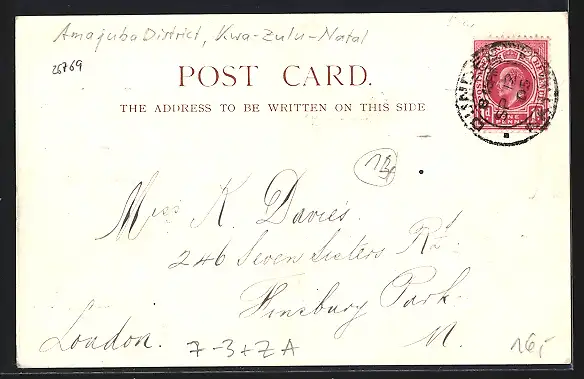 Amajuba District, Kwa-Zulu-Natal
25769
POST CARD.
THE ADDRESS TO BE WRITTEN ON THIS SIDE
ONE PENNY
Miss K. Davies.
246 Seven Sisters Rd.
Finsbury Park.
N.
London.
7-3+ZA
16,-